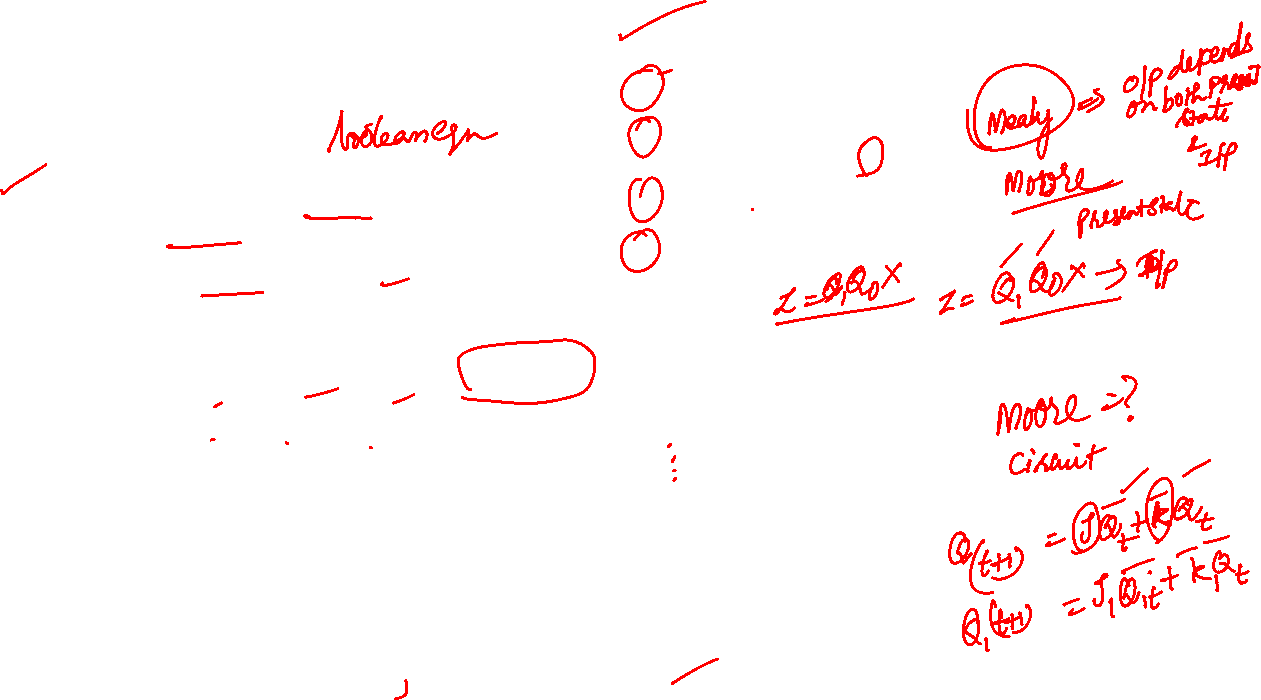 boolean eqn
Mealy => O/P depends
on both present
state
& I/P
Moore
Present state
Z = Q₁Q₀X
Z = Q₁Q₀X → I/p
Moore =?
Circuit
Q(t+1) = JQ̅t + K̅Qt
Q₁(t+1) = J₁Q̅₁t + K̅₁Q₁t